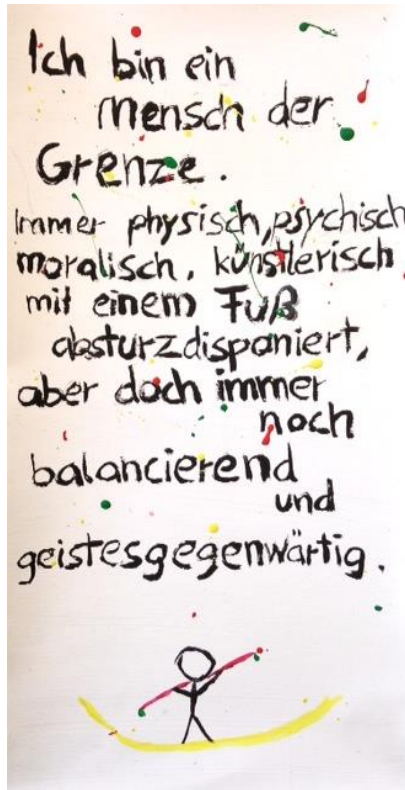 Ich bin ein
Mensch der
Grenze.
Immer physisch, psychisch
moralisch, künstlerisch
mit einem Fuß
absturzdisponiert,
aber doch immer
noch
balancierend
und
geistesgegenwärtig.